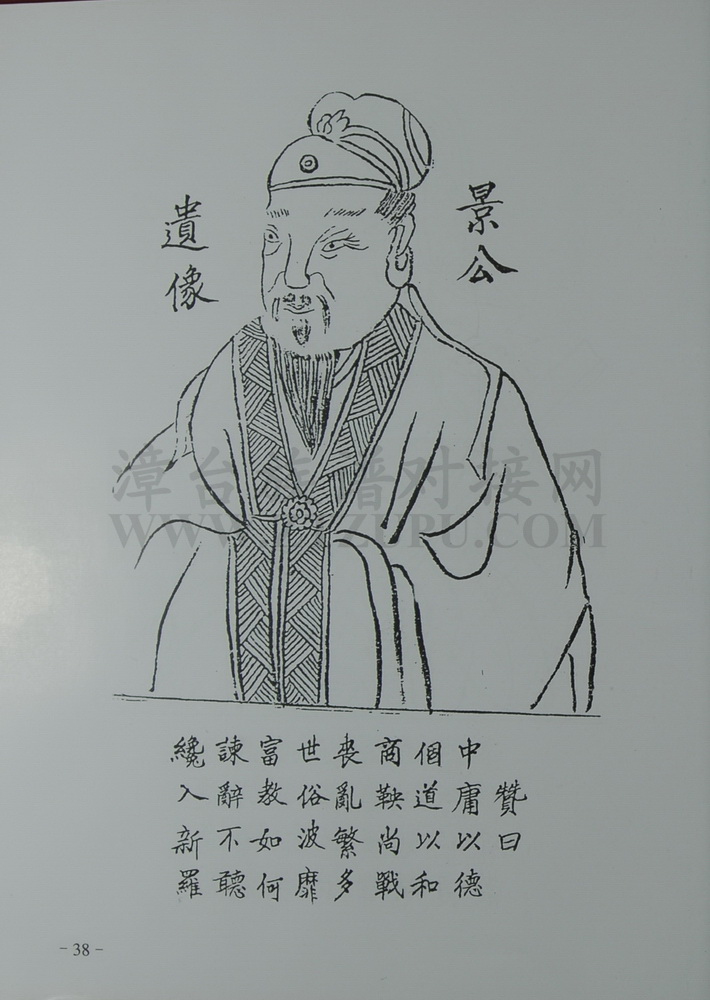 景公
遺像
漳台族譜對接网
WWW.ZTZUPU.COM
贊曰
中庸以德
個道以和
商鞅尚戰
喪亂繁多
世俗波靡
富教如何
諫辭不聽
纔入新羅
-38-